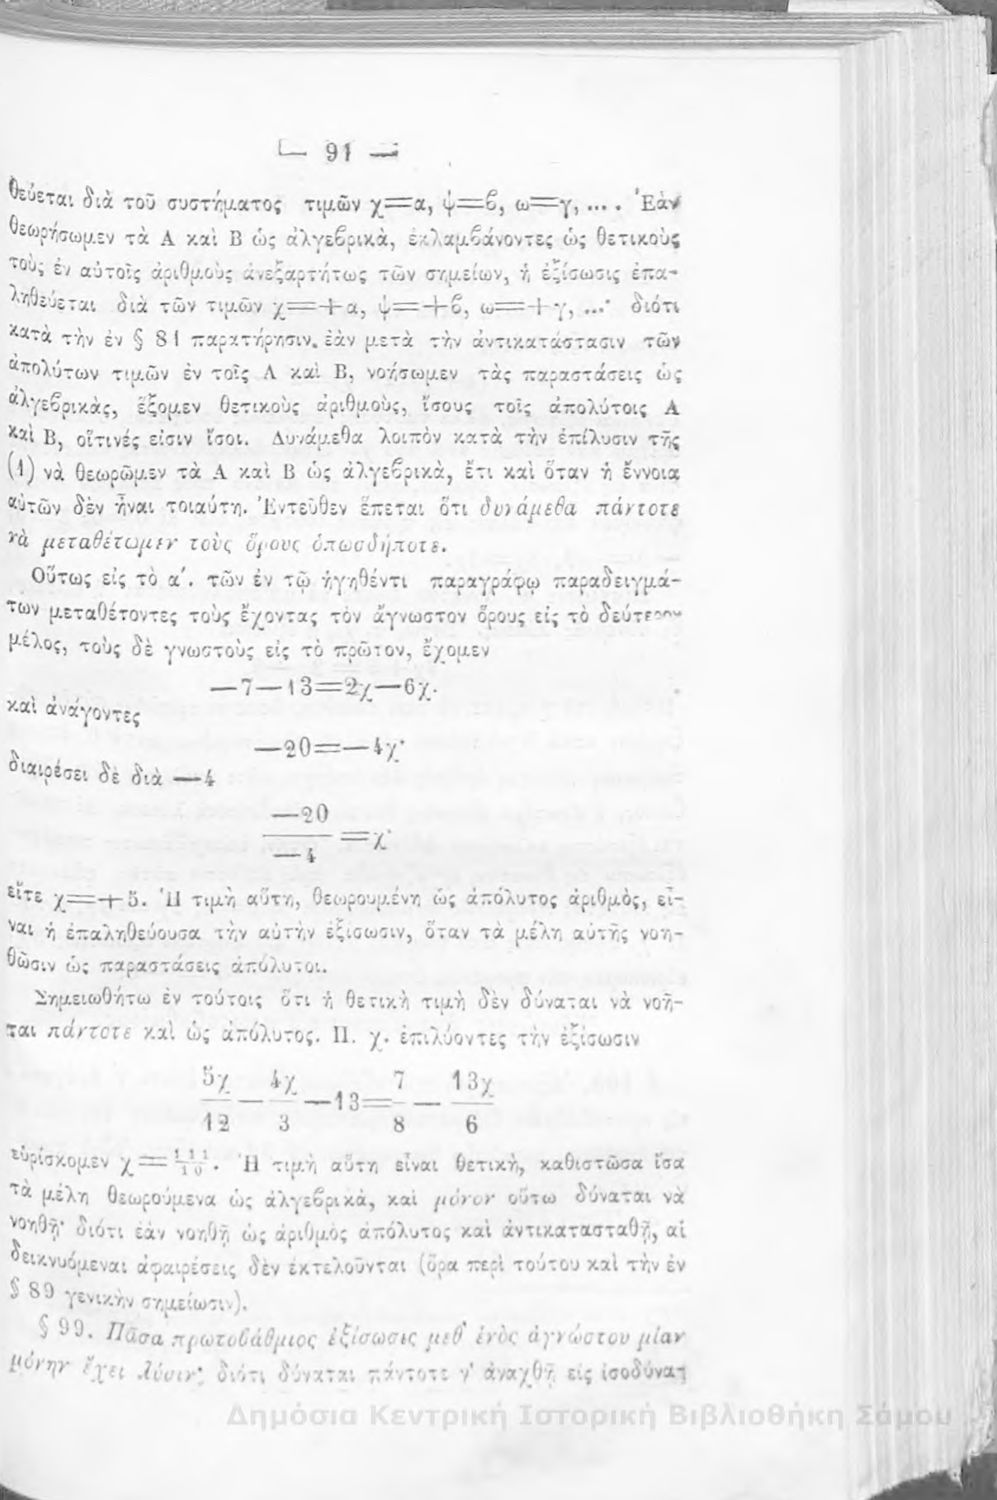 — 91 —
θεύεται διὰ τοῦ συστήματος τιμῶν χ=α, ψ=β, ω=γ, .... Ἐὰν
θεωρήσωμεν τὰ Α καὶ Β ὡς ἀλγεβρικὰ, ἐκλαμβάνοντες ὡς θετικοὺς
τοὺς ἐν αὐτοῖς ἀριθμοὺς ἀνεξαρτήτως τῶν σημείων, ἡ ἐξίσωσις ἐπα-
ληθεύεται διὰ τῶν τιμῶν χ=+α, ψ=+β, ω=+γ, ...· διότι
κατὰ τὴν ἐν § 81 παρατήρησιν, ἐὰν μετὰ τὴν ἀντικατάστασιν τῶν
ἀπολύτων τιμῶν ἐν τοῖς Α καὶ Β, νοήσωμεν τὰς παραστάσεις ὡς
ἀλγεβρικὰς, ἕξομεν θετικοὺς ἀριθμοὺς, ἴσους τοῖς ἀπολύτοις Α
καὶ Β, οἵτινές εἰσιν ἴσοι. Δυνάμεθα λοιπὸν κατὰ τὴν ἐπίλυσιν τῆς
(1) νὰ θεωρῶμεν τὰ Α καὶ Β ὡς ἀλγεβρικὰ, ἔτι καὶ ὅταν ἡ ἔννοια
αὐτῶν δὲν ἦναι τοιαύτη. Ἐντεῦθεν ἕπεται ὅτι δυνάμεθα πάντοτε
νὰ μεταθέτωμεν τοὺς ὅρους ὁπωσδήποτε.
Οὕτως εἰς τὸ α΄. τῶν ἐν τῷ ἡγηθέντι παραγράφῳ παραδειγμά-
των μεταθέτοντες τοὺς ἔχοντας τὸν ἄγνωστον ὅρους εἰς τὸ δεύτερον
μέλος, τοὺς δὲ γνωστοὺς εἰς τὸ πρῶτον, ἔχομεν
—7—13=2χ—6χ·
καὶ ἀνάγοντες
—20=—4χ·
διαιρέσει δὲ διὰ —4
—20
=χ·
—4
εἴτε χ=+5. Ἡ τιμὴ αὕτη, θεωρουμένη ὡς ἀπόλυτος ἀριθμὸς, εἶ-
ναι ἡ ἐπαληθεύουσα τὴν αὐτὴν ἐξίσωσιν, ὅταν τὰ μέλη αὐτῆς νοη-
θῶσιν ὡς παραστάσεις ἀπόλυτοι.
Σημειωθήτω ἐν τούτοις ὅτι ἡ θετικὴ τιμὴ δὲν δύναται νὰ νοῆ-
ται πάντοτε καὶ ὡς ἀπόλυτος. Π. χ. ἐπιλύοντες τὴν ἐξίσωσιν
5χ 4χ 7 13χ
— — —13= — —
12 3 8 6
εὑρίσκομεν χ=111/10. Ἡ τιμὴ αὕτη εἶναι θετικὴ, καθιστῶσα ἴσα
τὰ μέλη θεωρούμενα ὡς ἀλγεβρικὰ, καὶ μόνον οὕτω δύναται νὰ
νοηθῇ· διότι ἐὰν νοηθῇ ὡς ἀριθμὸς ἀπόλυτος καὶ ἀντικατασταθῇ, αἱ
δεικνυόμεναι ἀφαιρέσεις δὲν ἐκτελοῦνται (ὅρα περὶ τούτου καὶ τὴν ἐν
§ 89 γενικὴν σημείωσιν).
§ 99. Πᾶσα πρωτοβάθμιος ἐξίσωσις μεθ' ἑνὸς ἀγνώστου μίαν
μόνην ἔχει λύσιν· διότι δύναται πάντοτε ν' ἀναχθῇ εἰς ἰσοδύνα-
Δημόσια Κεντρική Ιστορική Βιβλιοθήκη Σάμου